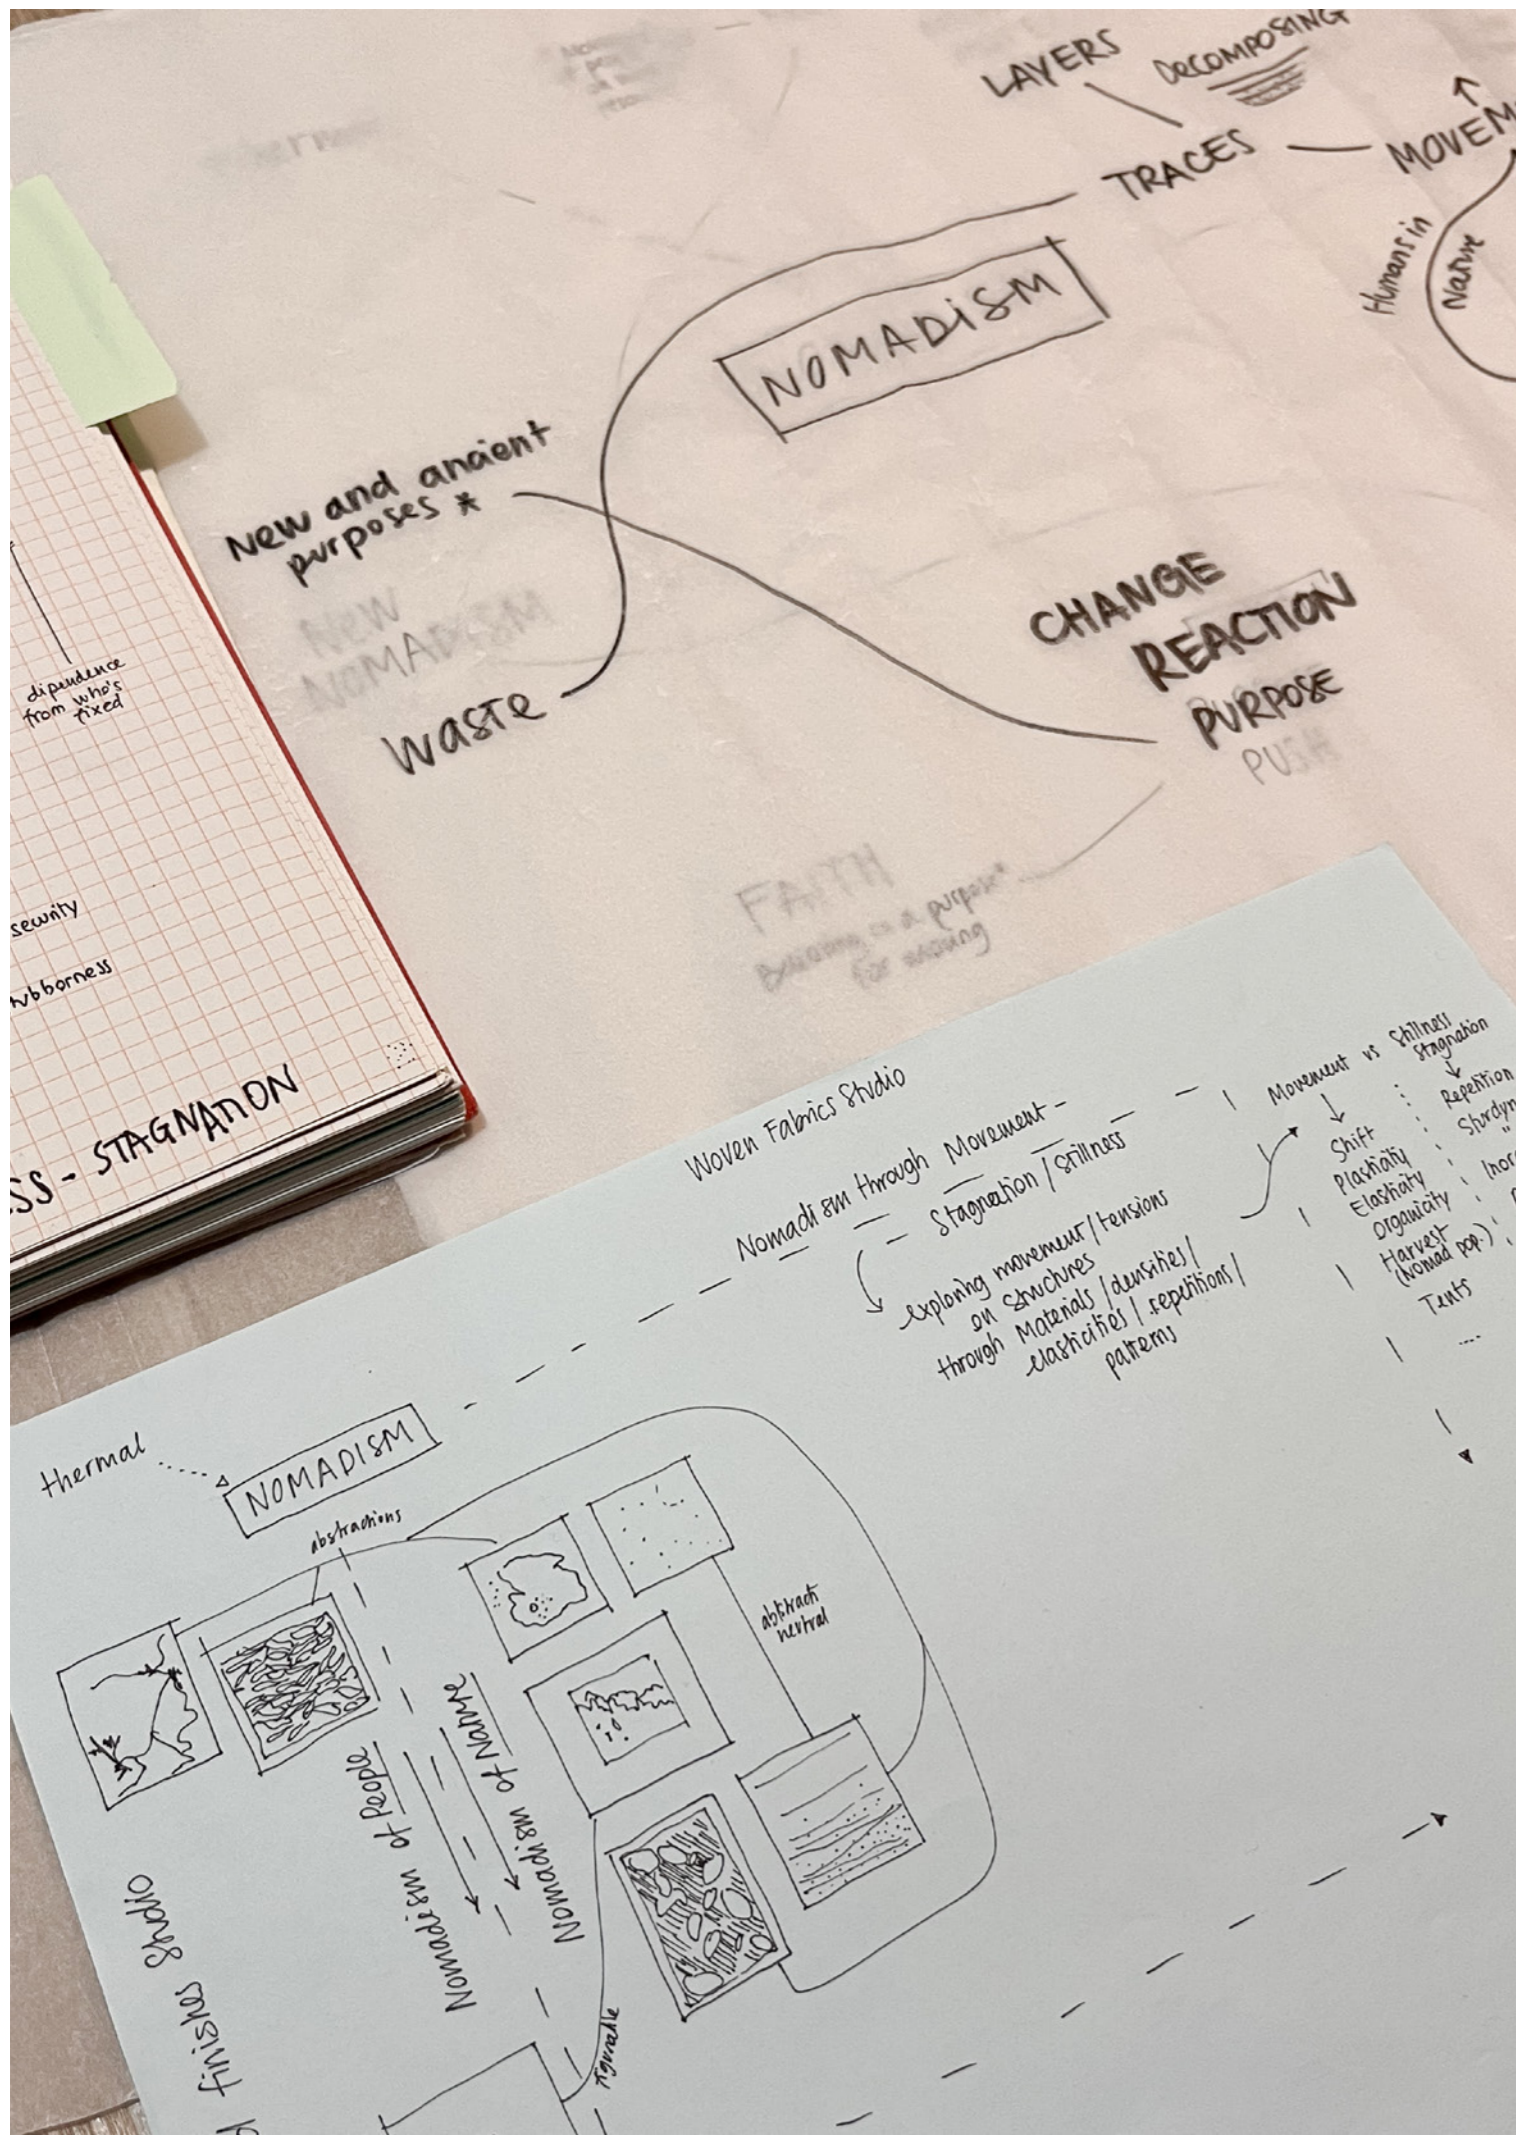 LAYERS
DECOMPOSING
TRACES
MOVEM
Humans in
Nature
NOMADISM
New and ancient
purposes *
NEW
NOMADISM
waste
CHANGE
REACTION
PURPOSE
PUSH
FAITH
purpose*
for moving
dipendence
from who's
fixed
security
tubborness
SS - STAGNATION
Woven Fabrics Studio
Nomadism through Movement -
Stagnation / Stillness
exploring movement / tensions
on structures
through Materials / densities /
elasticities / repetitions /
patterns
Movement vs Stillness
Stagnation
Shift
Plasticity
Elasticity
Organicity
Harvest
(Nomad pop.)
Tents
....
Repetition
Sturdyn
"
thermal
NOMADISM
abstractions
abstract
neutral
Nomadism of People
Nomadism of Nature
figurable
Finishes Studio